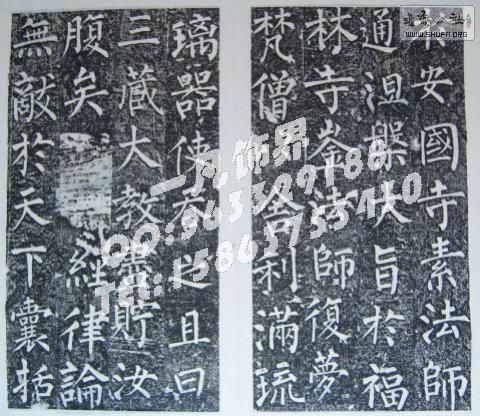 安國寺素法師
通涅槃大旨於福
林寺崟法師復夢
梵僧舍利滿琉
璃器使吞之且曰
三藏大教盡貯汝
腹矣經律論
無敵於天下囊括
WWW.SHUFA.ORG
一凡饰界
QQ:963329188
Tel:15863755410